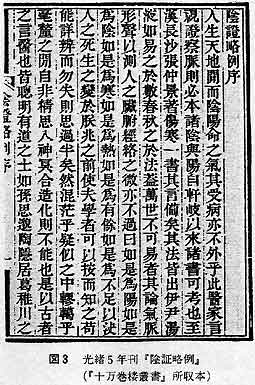 陰證略例序
人生天地間而陰陽命之氣其受病亦不外乎此醫家言
視證察脈則必本諸陰與陽自軒岐以來諸書可考也獨
漢長沙張仲景著傷寒一書其言備矣其法皆出伊尹湯
液如易之於數春秋之於法蓋萬世不可易者其論氣脈
形聲以測人之臟腑經絡之微亦不過曰如是為陽如是
為陰如是為寒如是為熱如是為有餘如是為不足以決
人之死生之變於朕兆之前使夫學者可以按而知之苟
能詳辨而勿失則思過半矣然混茫乎疑似之中轇轕乎
毫釐之間自非精思入神冥合造化則不能也是以古者
之言醫也皆聰明有道之士如孫思邈陶隱居葛稚川之
陰證略例序
図3 光緒5年刊『陰証略例』
(『十万巻楼叢書』所収本)